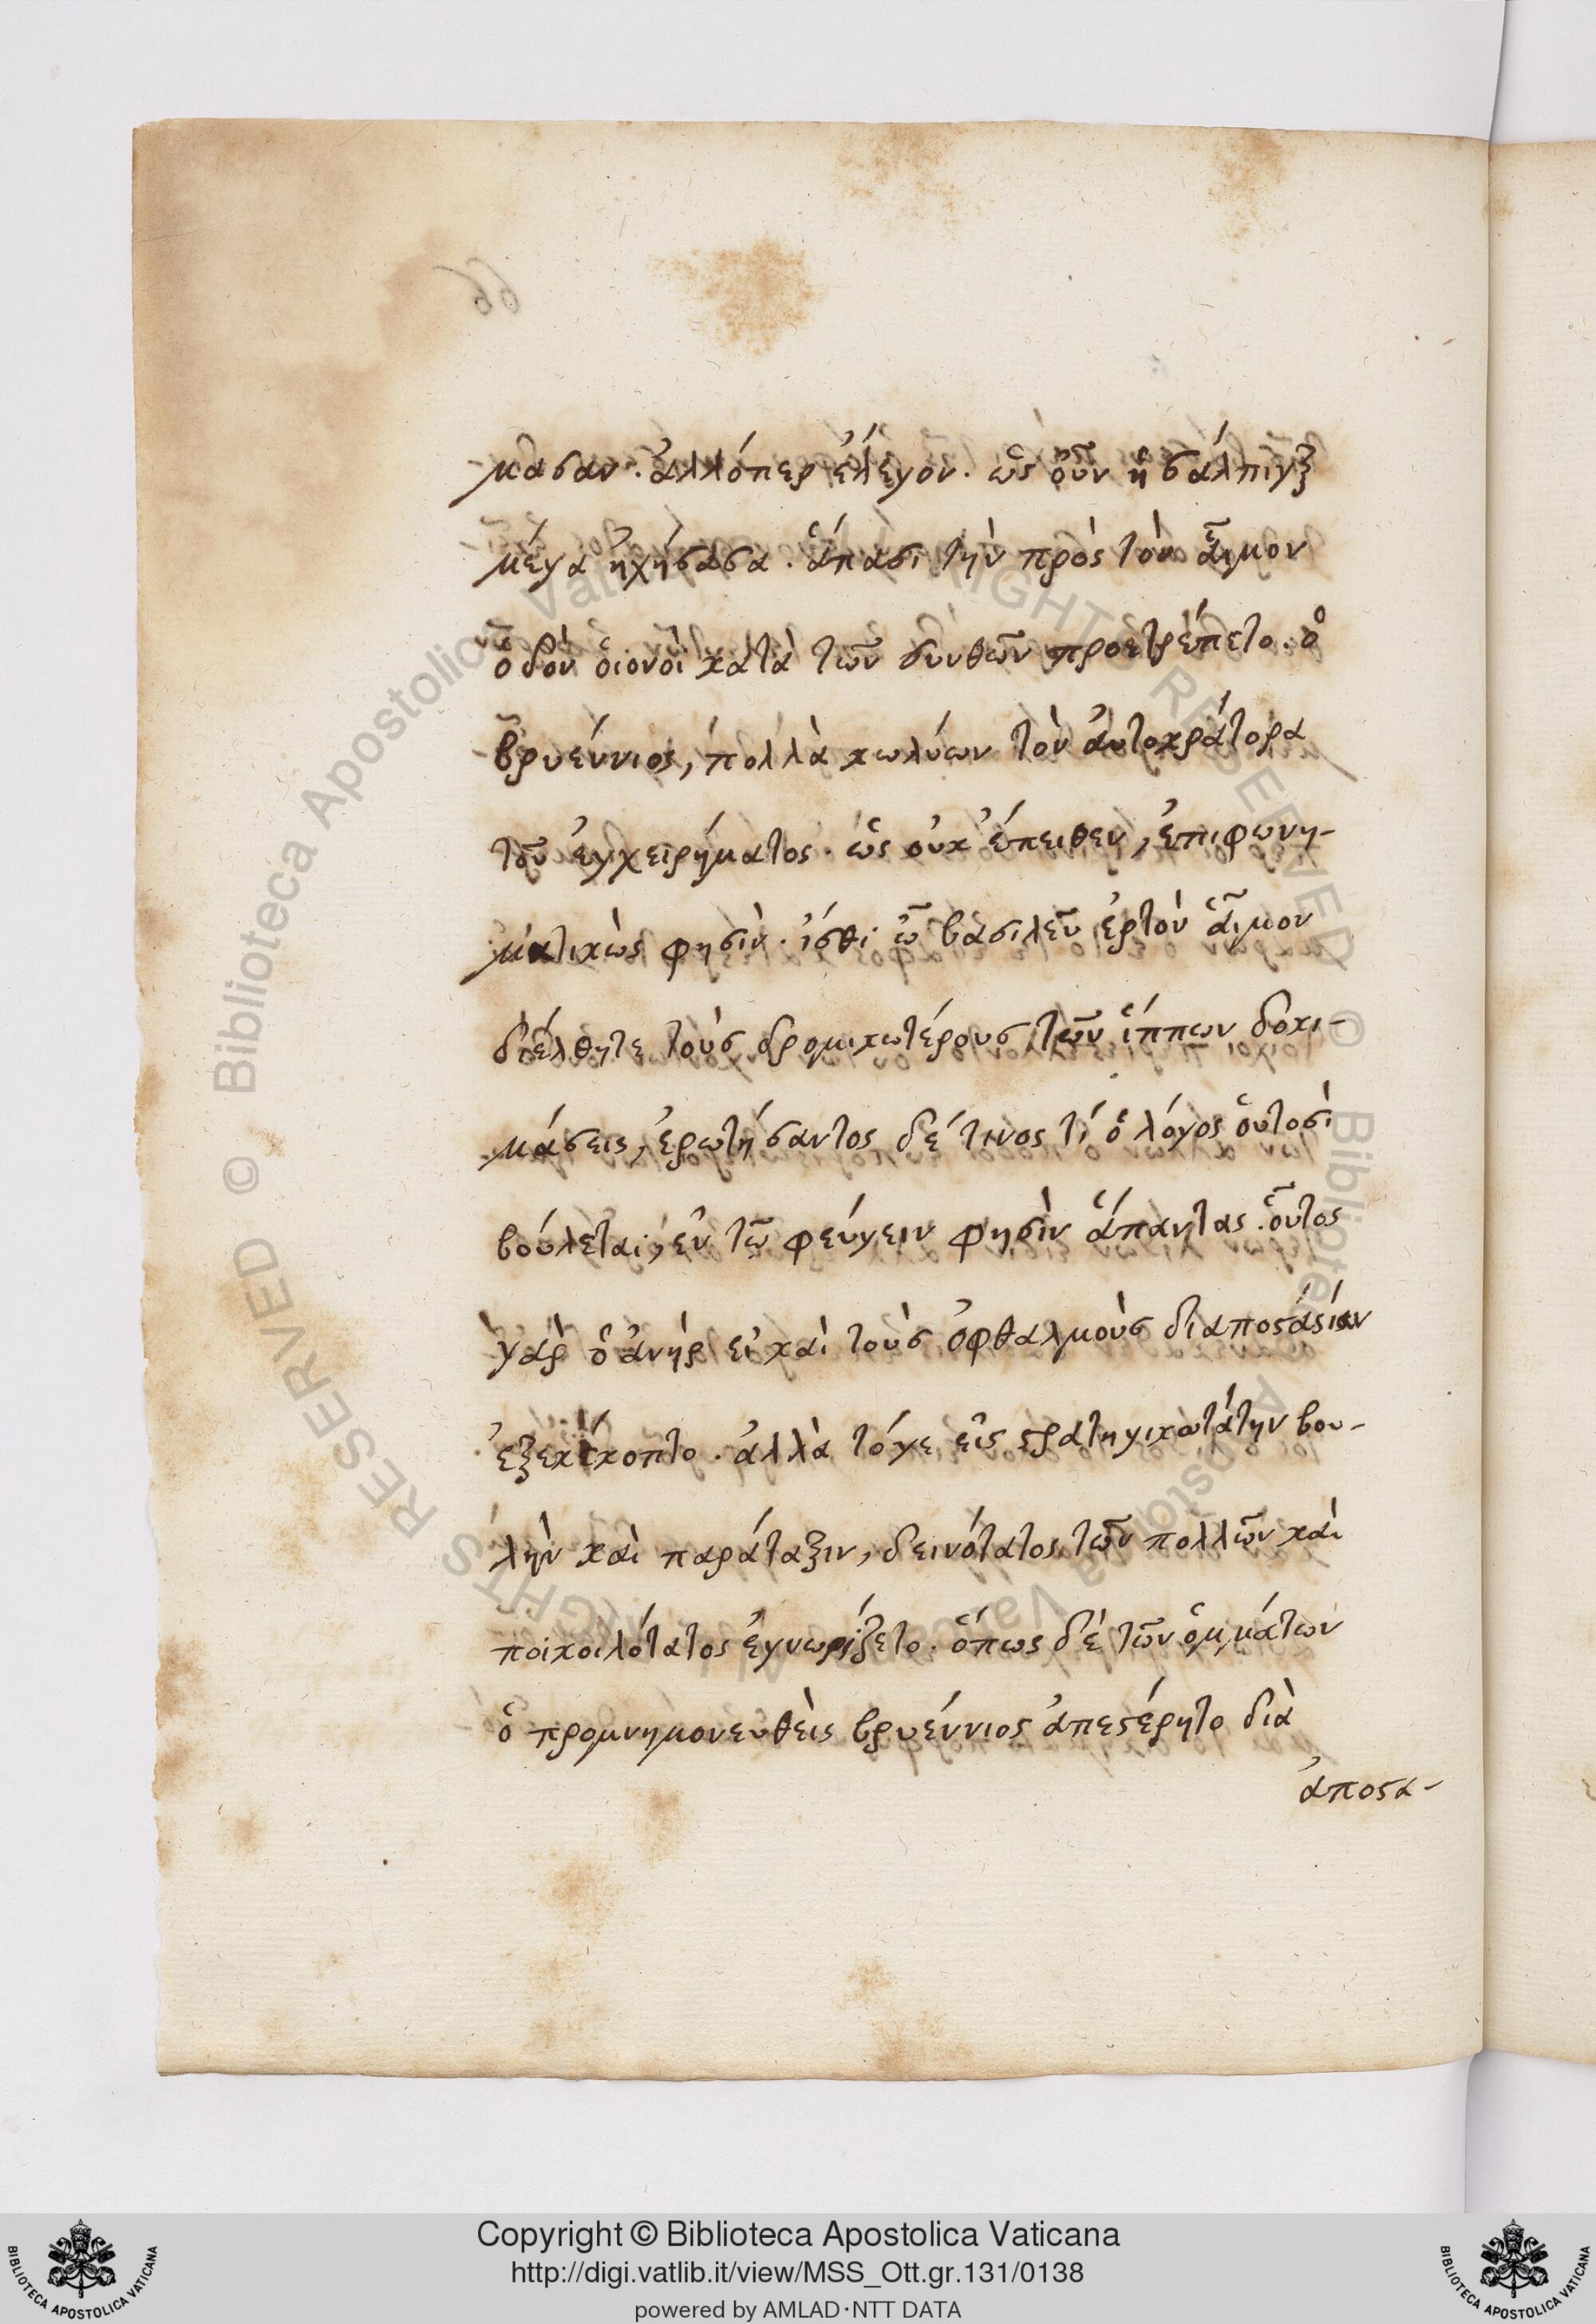 μασαν. ἀλλόπερ ἔλεγον. ὡς οὖν ἡ σάλπιγξ
μέγα ἠχήσασα. ἅπασι τὴν πρὸς τὸν αἷμον
ὁδὸν οἱονοῖ κατὰ τῶν σκυθῶν προετρέπετο. ὁ
βρυέννιος, πολλὰ κωλύων τὸν ἀυτοκράτορα
τοῦ ἐγχειρήματος. ὡς οὐκ ἔπειθεν, ἐπιφωνη-
ματικῶς φησὶν. ἴσθι ὦ βασιλεῦ ἐρτὸν αἷμον
διέλθητε τοὺς δρομικωτέρους τῶν ἵππων δοκι-
μάσεις, ἐρωτήσαντος δέ τινος τί ὁ λόγος οὑτοσὶ
βούλεται, ἐν τῷ φεύγειν φησὶν ἅπαντας. οὗτος
γὰρ ὁ ἀνὴρ εἰ καὶ τοὺς ὀφθαλμοὺς διαποστάσιαν
ἐξεκέκοπτο. ἀλλὰ τόγε εἰς στρατηγικωτάτην βου-
λὴν καὶ παράταξιν, δεινότατος τῶν πολλῶν καὶ
ποικοιλότατος ἐγνωρίζετο. ὅπως δὲ τῶν ὀμμάτων
ὁ προμνημονευθεὶς βρυέννιος ἀπεστέρητο διὰ
ἀποστα-
Copyright © Biblioteca Apostolica Vaticana
http://digi.vatlib.it/view/MSS_Ott.gr.131/0138
powered by AMLAD·NTT DATA